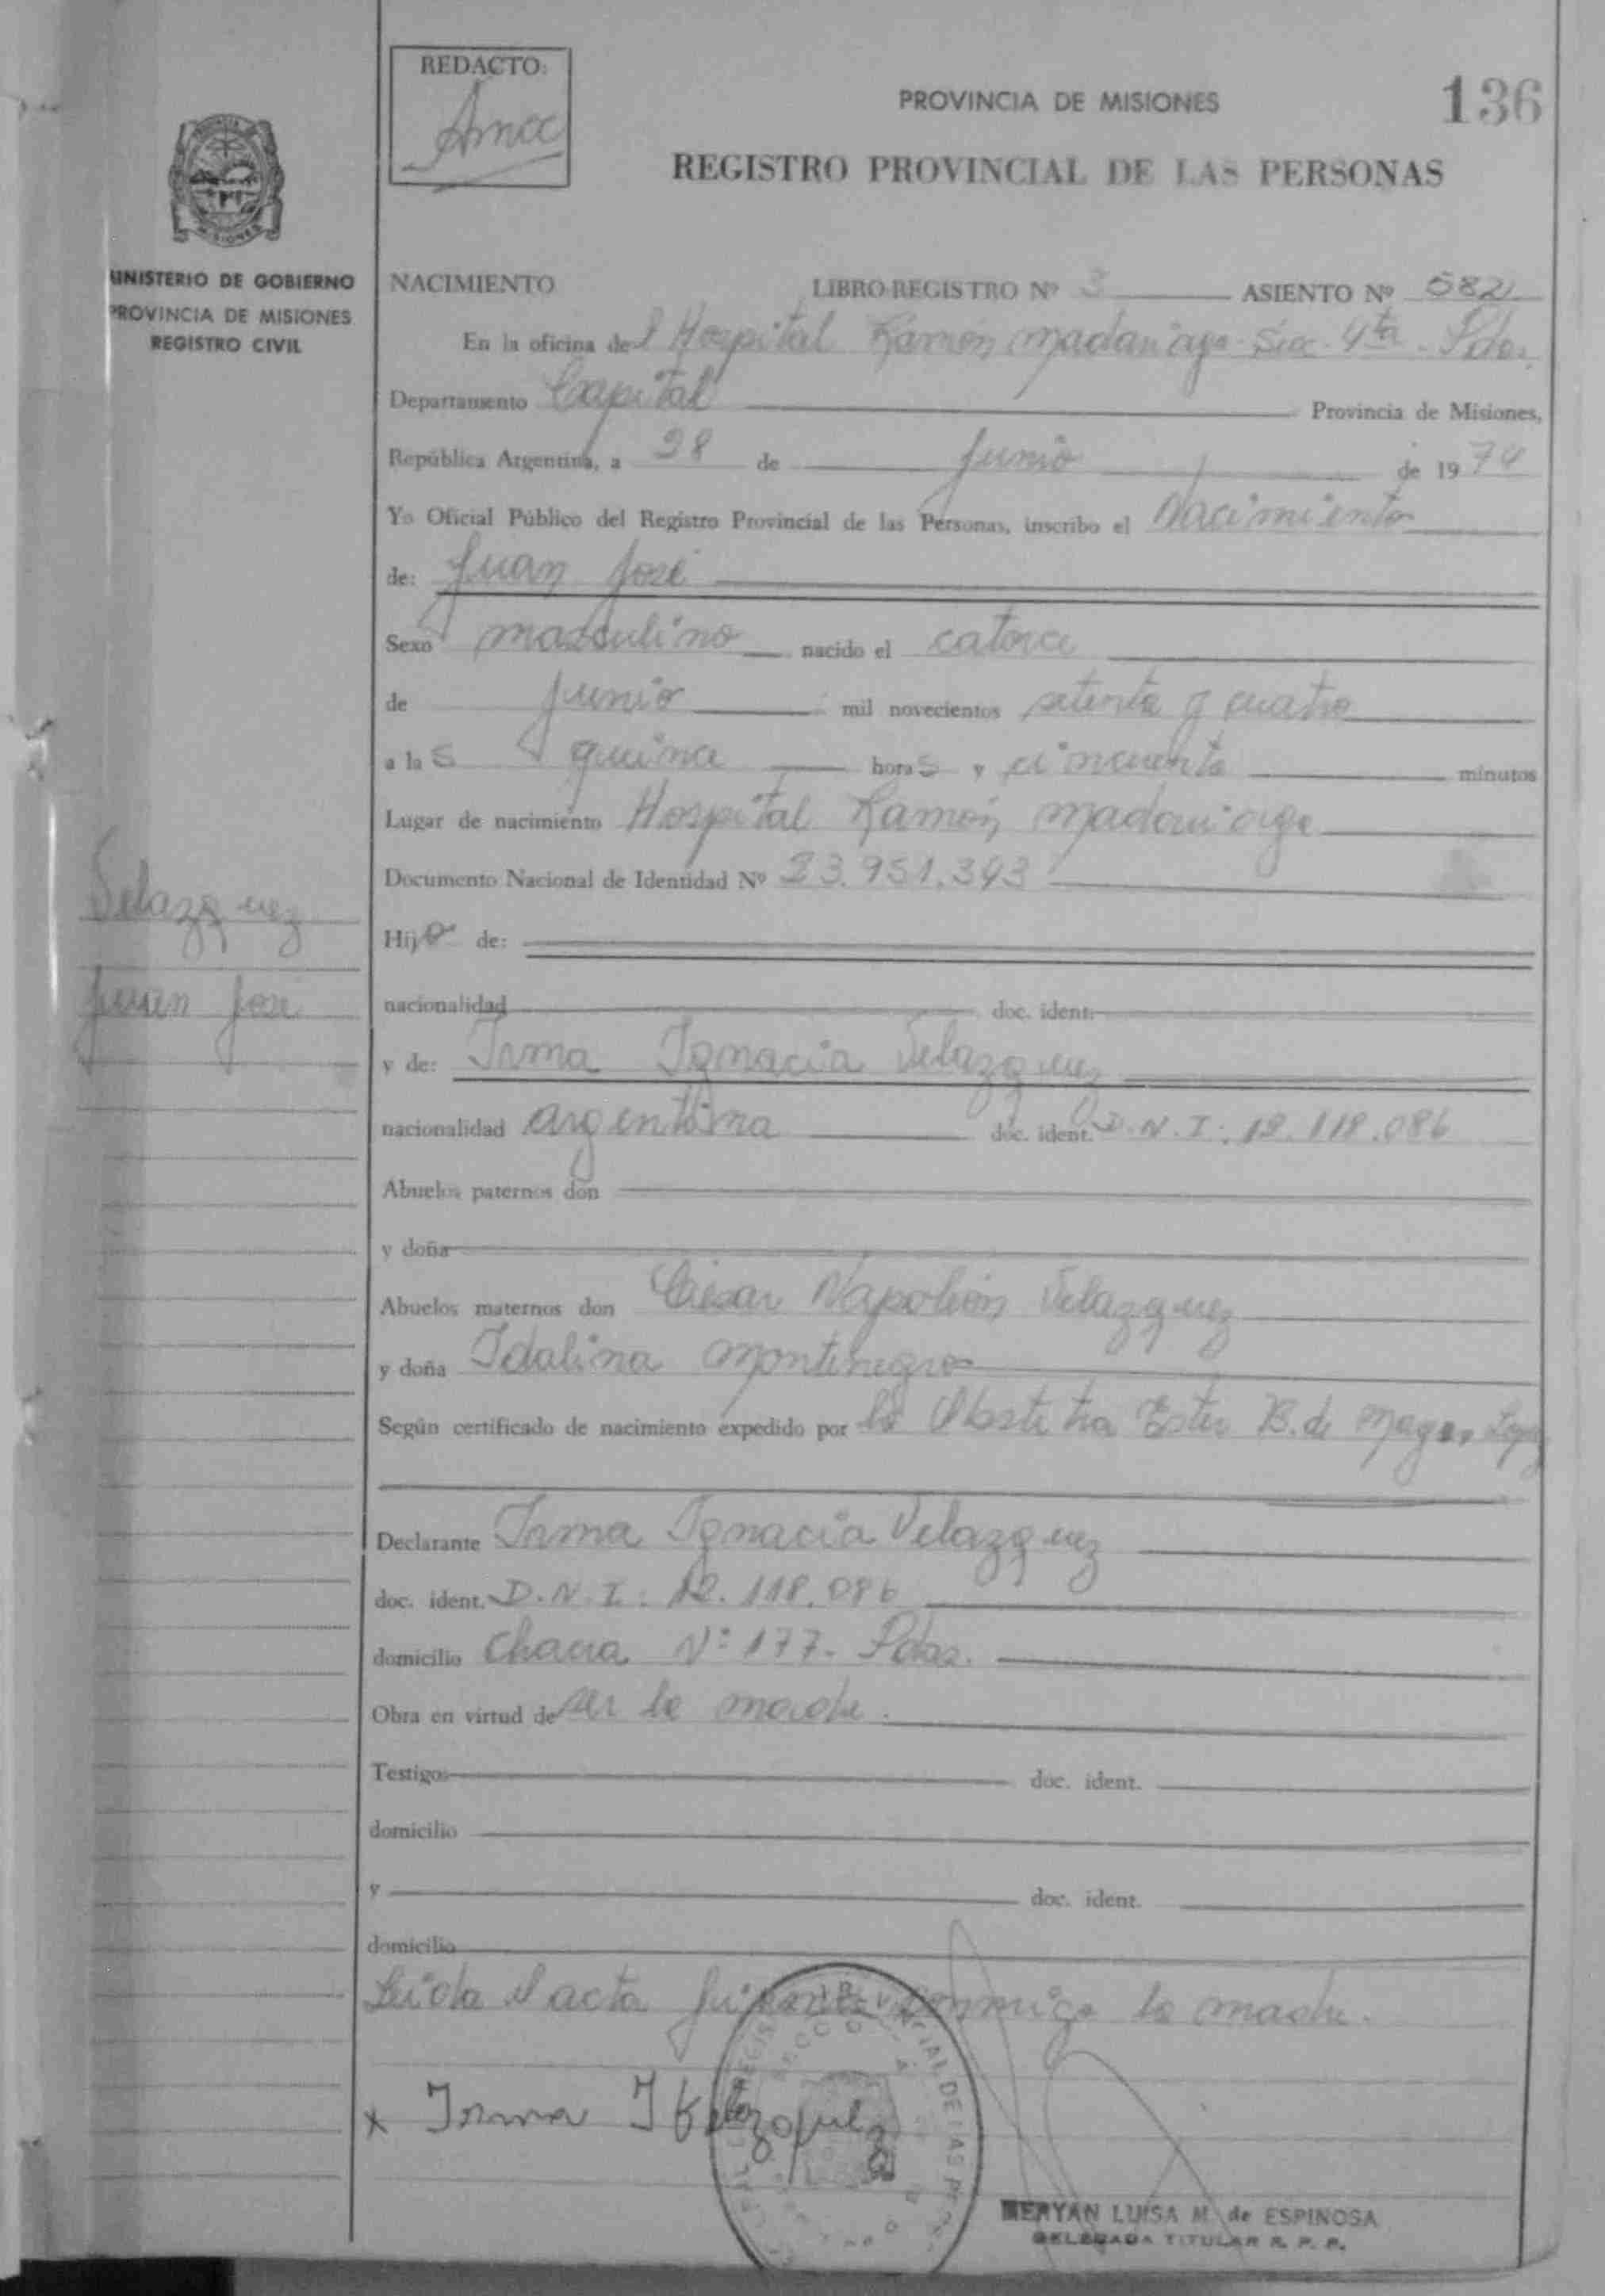 REDACTO:
PROVINCIA DE MISIONES
136
REGISTRO PROVINCIAL DE LAS PERSONAS
MINISTERIO DE GOBIERNO
PROVINCIA DE MISIONES
REGISTRO CIVIL
NACIMIENTO LIBRO-REGISTRO Nº 3 ASIENTO Nº 582
En la oficina del Hospital Ramón Madariaga Sec. 4ta Pdas.
Departamento Capital Provincia de Misiones,
República Argentina, a 28 de Junio de 1974
Yo Oficial Público del Registro Provincial de las Personas, inscribo el Nacimiento
de: Juan José
Sexo masculino nacido el catorce
de junio mil novecientos setenta y cuatro
a las quince horas y cincuenta minutos
Lugar de nacimiento Hospital Ramón Madariaga
Documento Nacional de Identidad Nº 23.951.343
Velazquez
Juan José
Hijo de:
nacionalidad doc. ident.
y de: Irma Ignacia Velazquez
nacionalidad argentina doc. ident. D.N.I: 12.118.086
Abuelos paternos don
y doña
Abuelos maternos don César Napoleón Velazquez
y doña Idalina Montenegro
Según certificado de nacimiento expedido por la Obstetra Ester B. de
Declarante Irma Ignacia Velazquez
doc. ident. D.N.I: 12.118.086
domicilio Chacra Nº 177- Pdas.
Obra en virtud de ser la madre.
Testigos doc. ident.
domicilio
y doc. ident.
domicilio
Leida el acta firma conmigo la madre.
x Irma I Velazquez
MERYAN LUISA M. de ESPINOSA
DELEGADA TITULAR R. P. P.